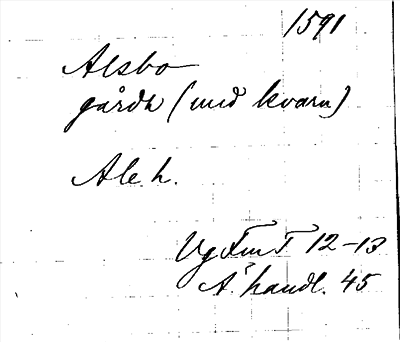 1591
Alsbo
gårdh (med kvarn)
Ale h.
VgFmT 12-13
Å. handl. 45